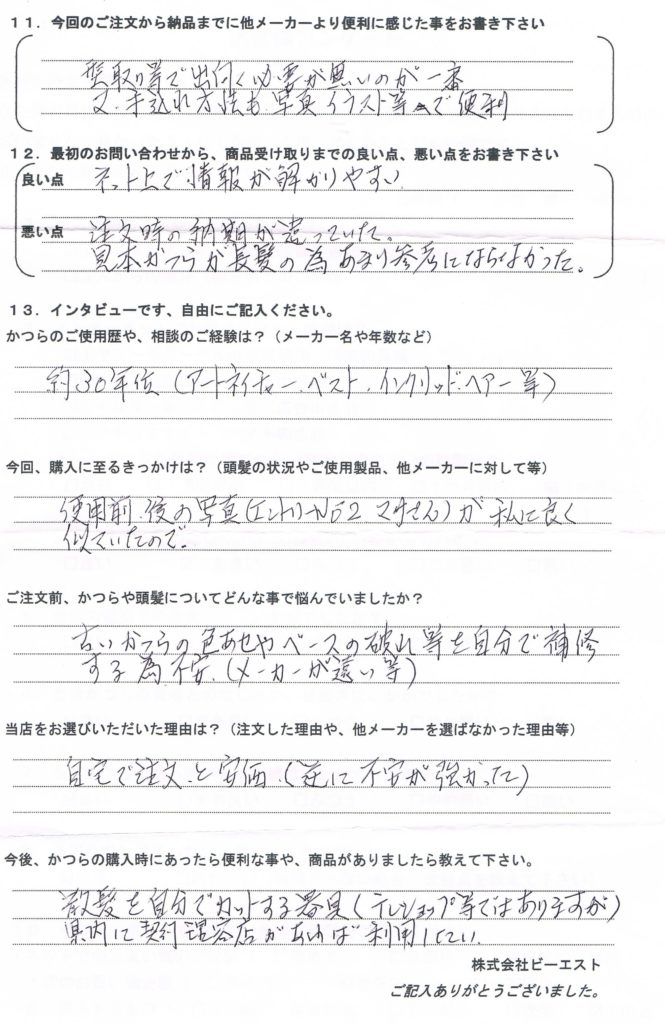 11．今回のご注文から納品までに他メーカーより便利に感じた事をお書き下さい
型取り等で出向く必要が無いのが一番
又、手入れ方法も写真イラスト等で便利
12．最初のお問い合わせから、商品受け取りまでの良い点、悪い点をお書き下さい
良い点 ネット上で情報が解かりやすい
悪い点 注文時の納期が違っていた。
見本かつらが長髪の為あまり参考にならなかった。
13．インタビューです、自由にご記入ください。
かつらのご使用歴や、相談のご経験は？（メーカー名や年数など）
約30年位（アートネイチャー、ベスト、イングリッド、ヘアー等）
今回、購入に至るきっかけは？（頭髪の状況やご使用製品、他メーカーに対して等）
使用前、後の写真（エントリーNo52 マサさん）が私に良く
似ていたので。
ご注文前、かつらや頭髪についてどんな事で悩んでいましたか？
古いかつらの色あせやベースの破れ等を自分で補修
する為不安。（メーカーが遠い等）
当店をお選びいただいた理由は？（注文した理由や、他メーカーを選ばなかった理由等）
自宅で注文、と安価、（逆に不安が強かった）
今後、かつらの購入時にあったら便利な事や、商品がありましたら教えて下さい。
散髪を自分でカットする器具（テレショップ等ではありますが）
県内に契約理容店があれば利用したい。
株式会社ビーエスト
ご記入ありがとうございました。